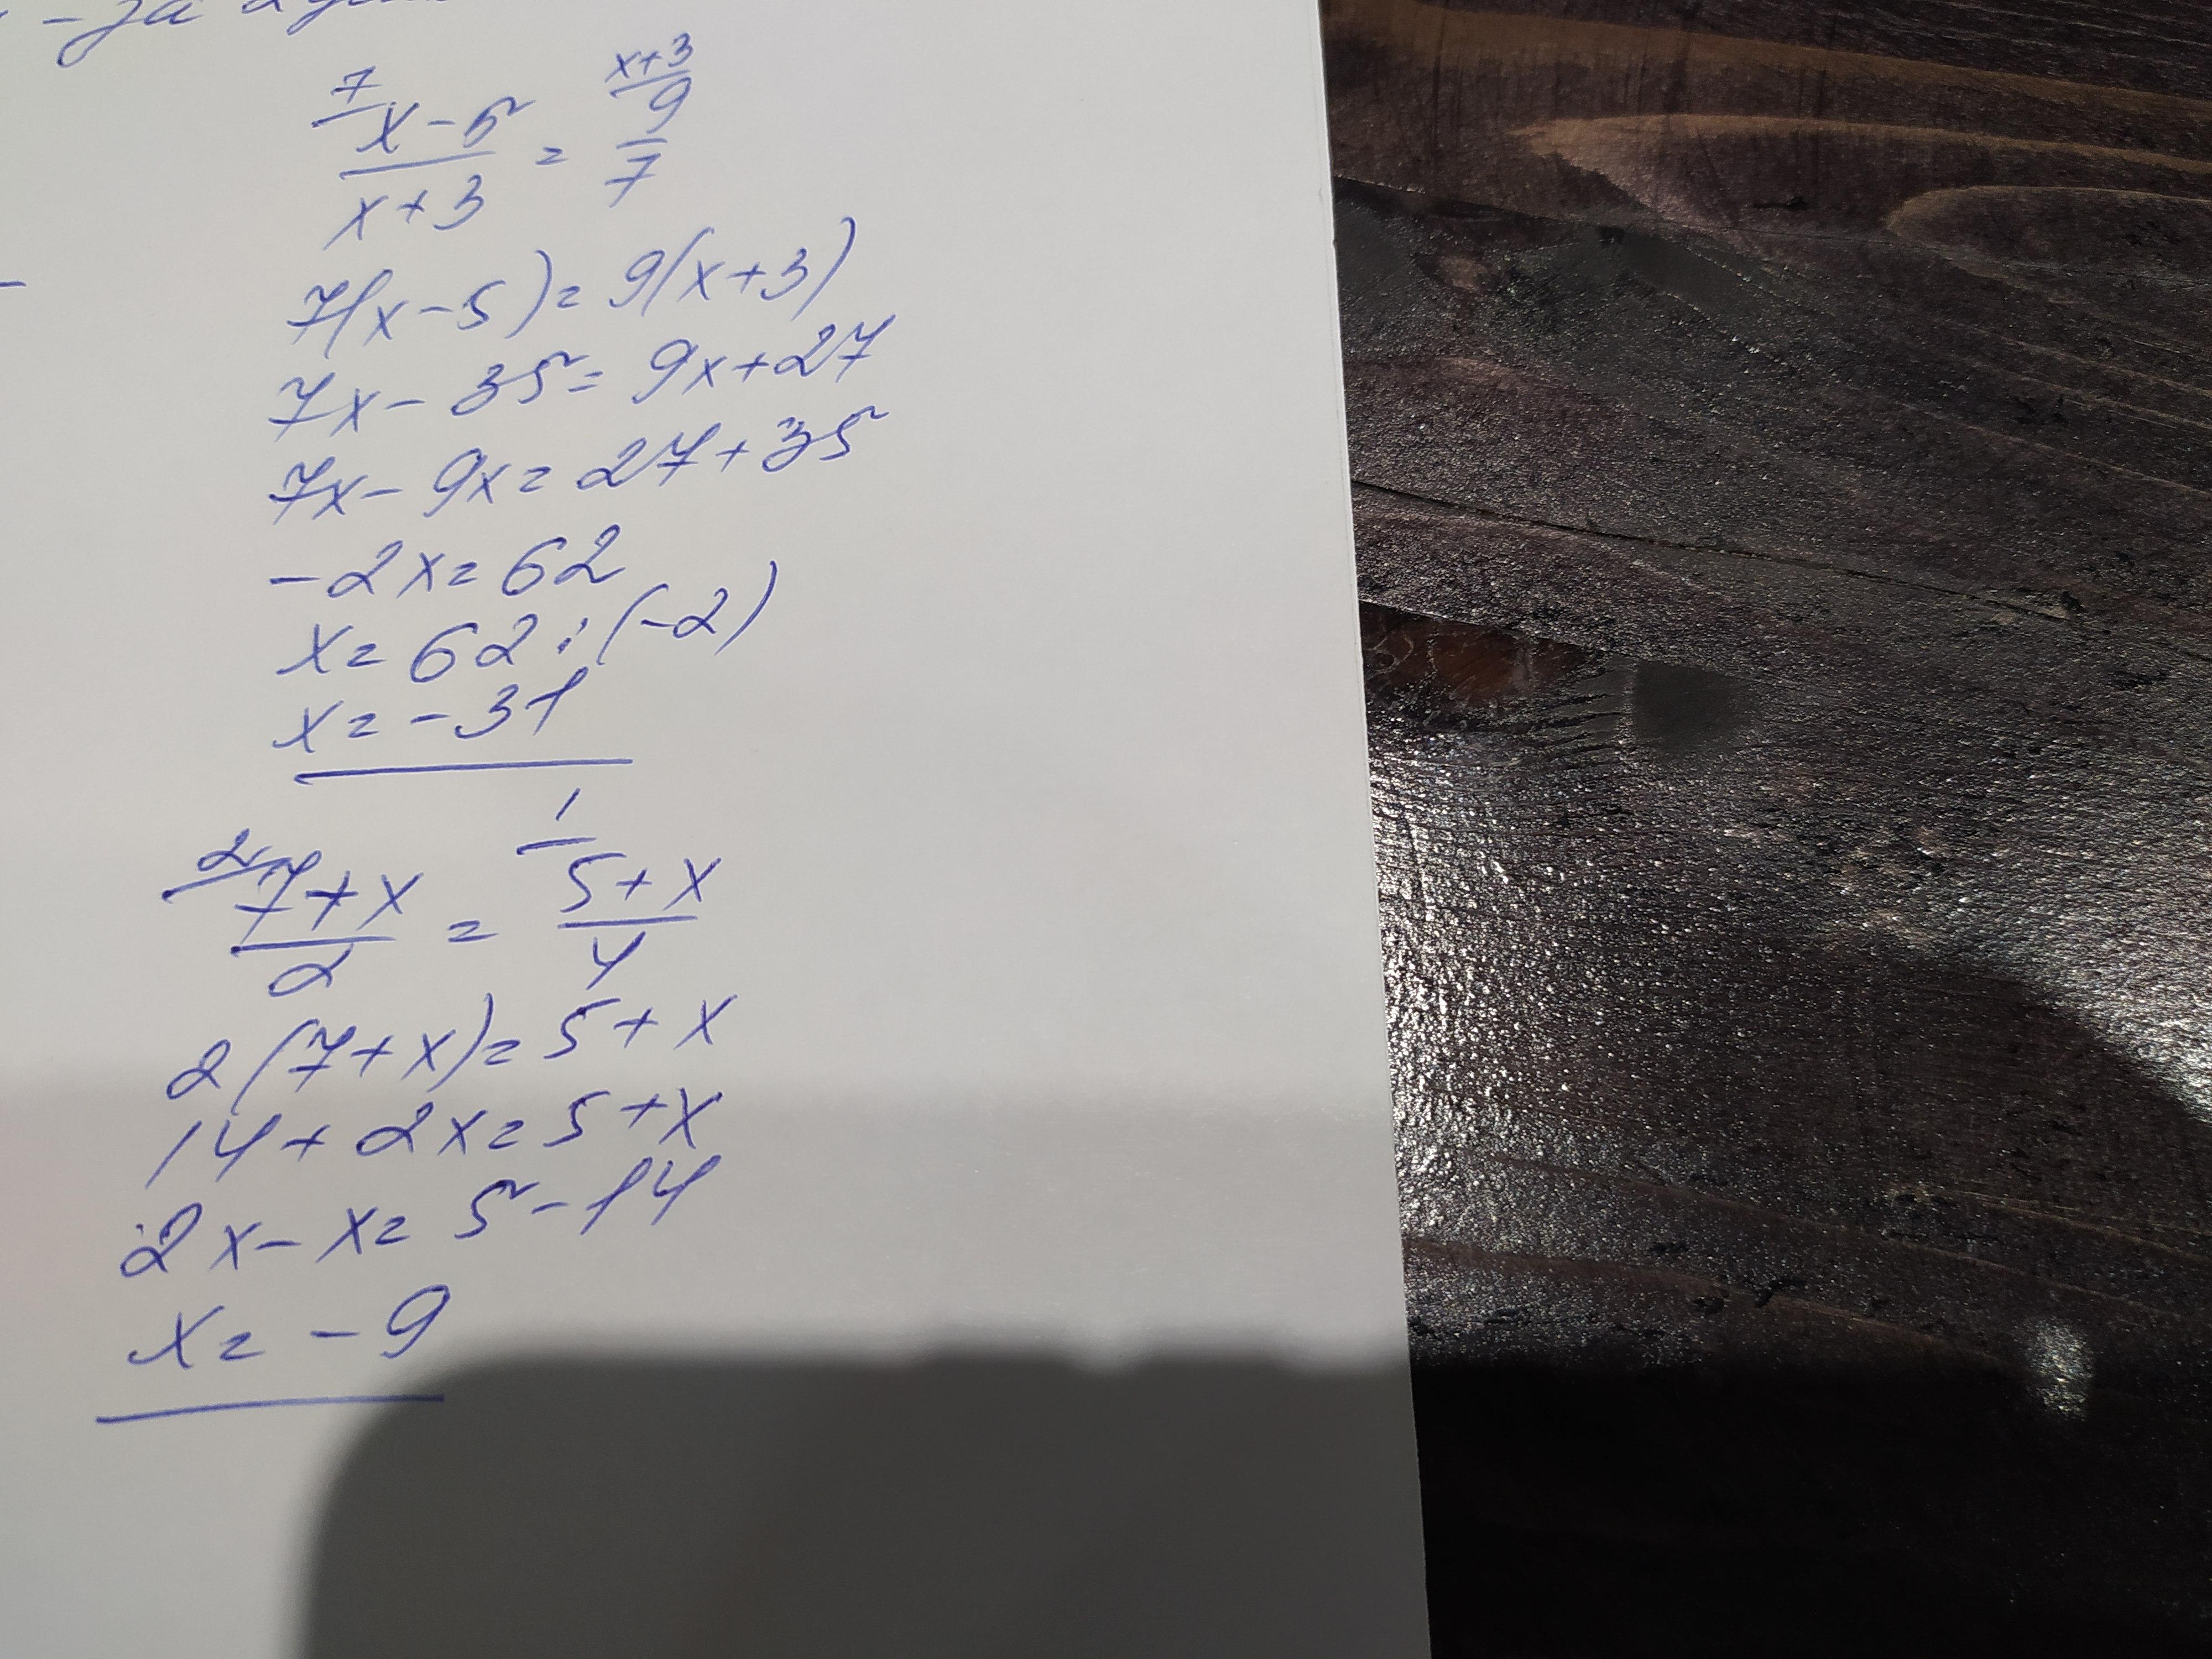 7
x-5 = x+3
9
x+3 7
7(x-5)=9(x+3)
7x-35=9x+27
7x-9x=27+35
-2x=62
x=62:(-2)
x=-31
2 1
7+x = 5+x
2 4
2(7+x)=5+x
14+2x=5+x
2x-x=5-14
x=-9